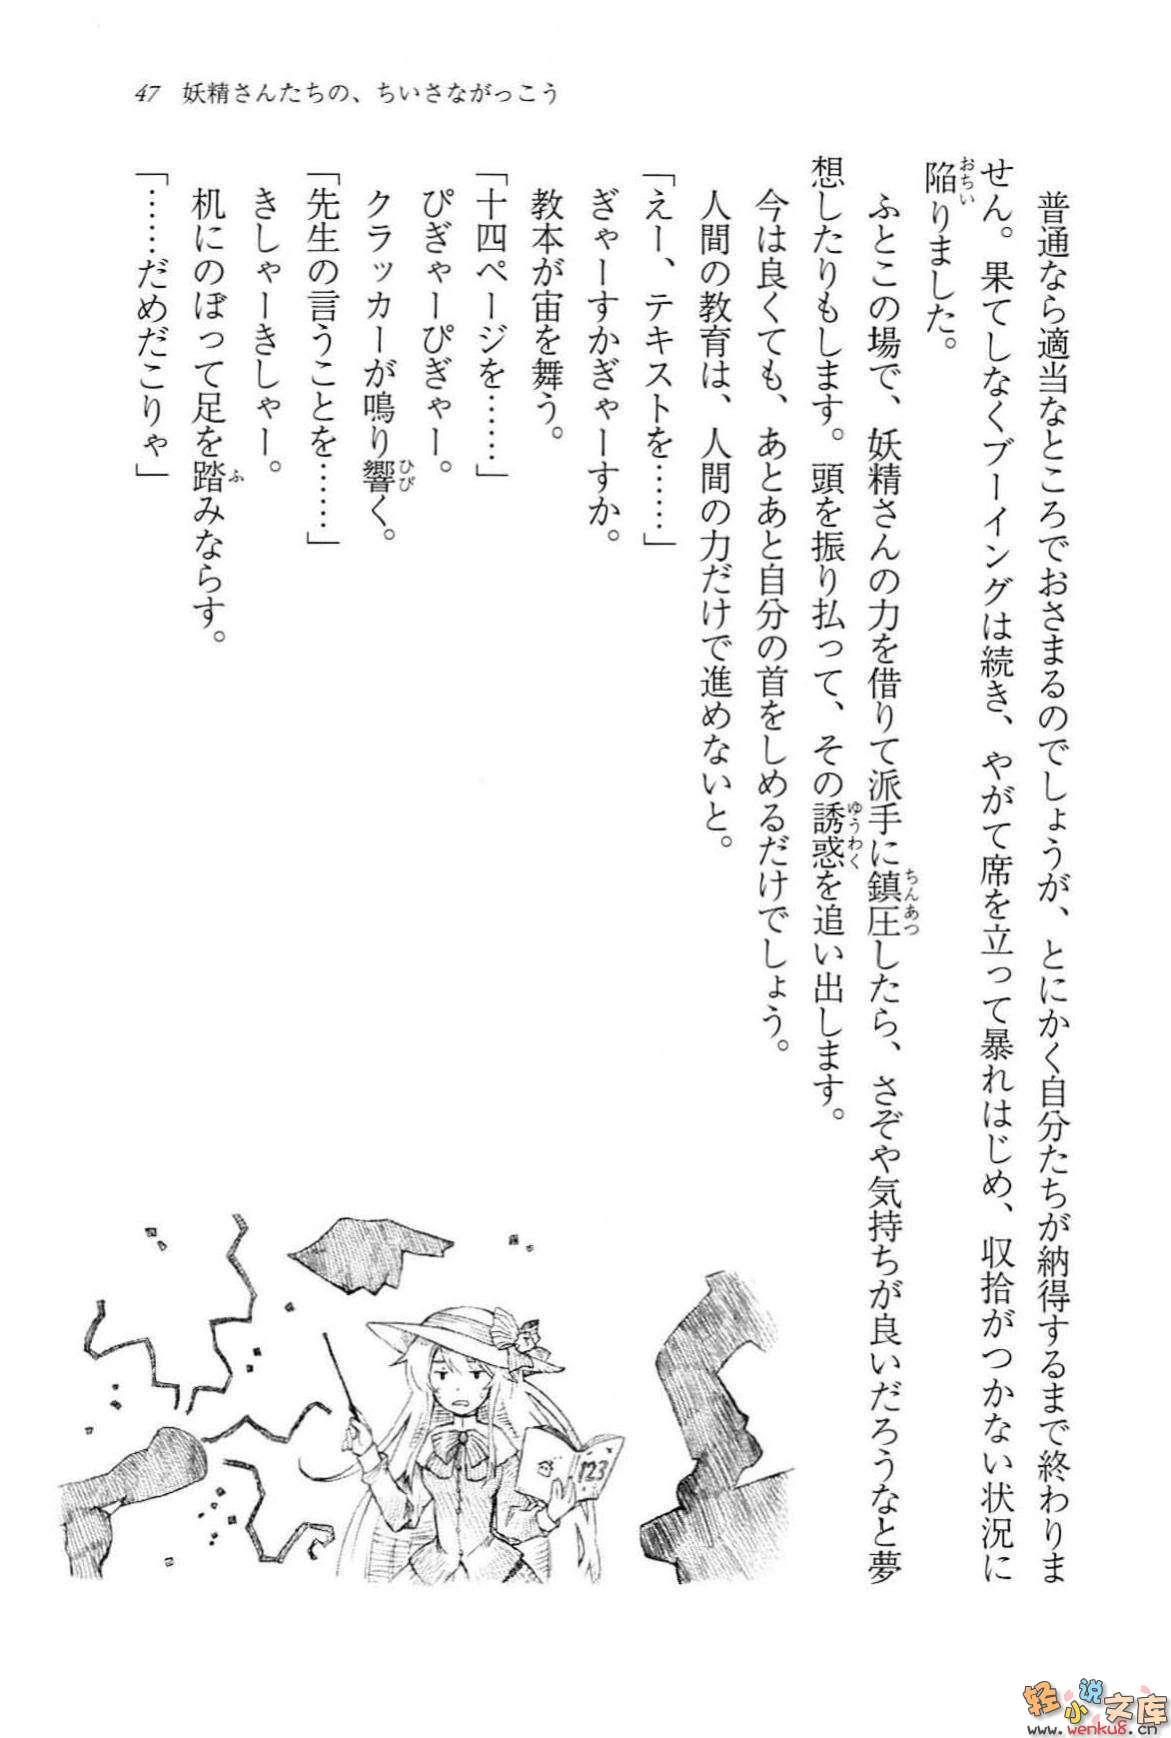 47 妖精さんたちの、ちいさながっこう
普通なら適当なところでおさまるのでしょうが、とにかく自分たちが納得するまで終わりま
せん。果てしなくブーイングは続き、やがて席を立って暴れはじめ、収拾がつかない状況に
陥りました。
おちい
ふとこの場で、妖精さんの力を借りて派手に鎮圧したら、さぞや気持ちが良いだろうなと夢
ちんあつ
想したりもします。頭を振り払って、その誘惑を追い出します。
ゆうわく
今は良くても、あとあと自分の首をしめるだけでしょう。
人間の教育は、人間の力だけで進めないと。
「えー、テキストを……」
ぎゃーすかぎゃーすか。
教本が宙を舞う。
「十四ページを……」
ぴぎゃーぴぎゃー。
クラッカーが鳴り響く。
ひび
「先生の言うことを……」
きしゃーきしゃー。
机にのぼって足を踏みならす。
ふ
「……だめだこりゃ」
123
轻小说文库
www.wenku8.cn